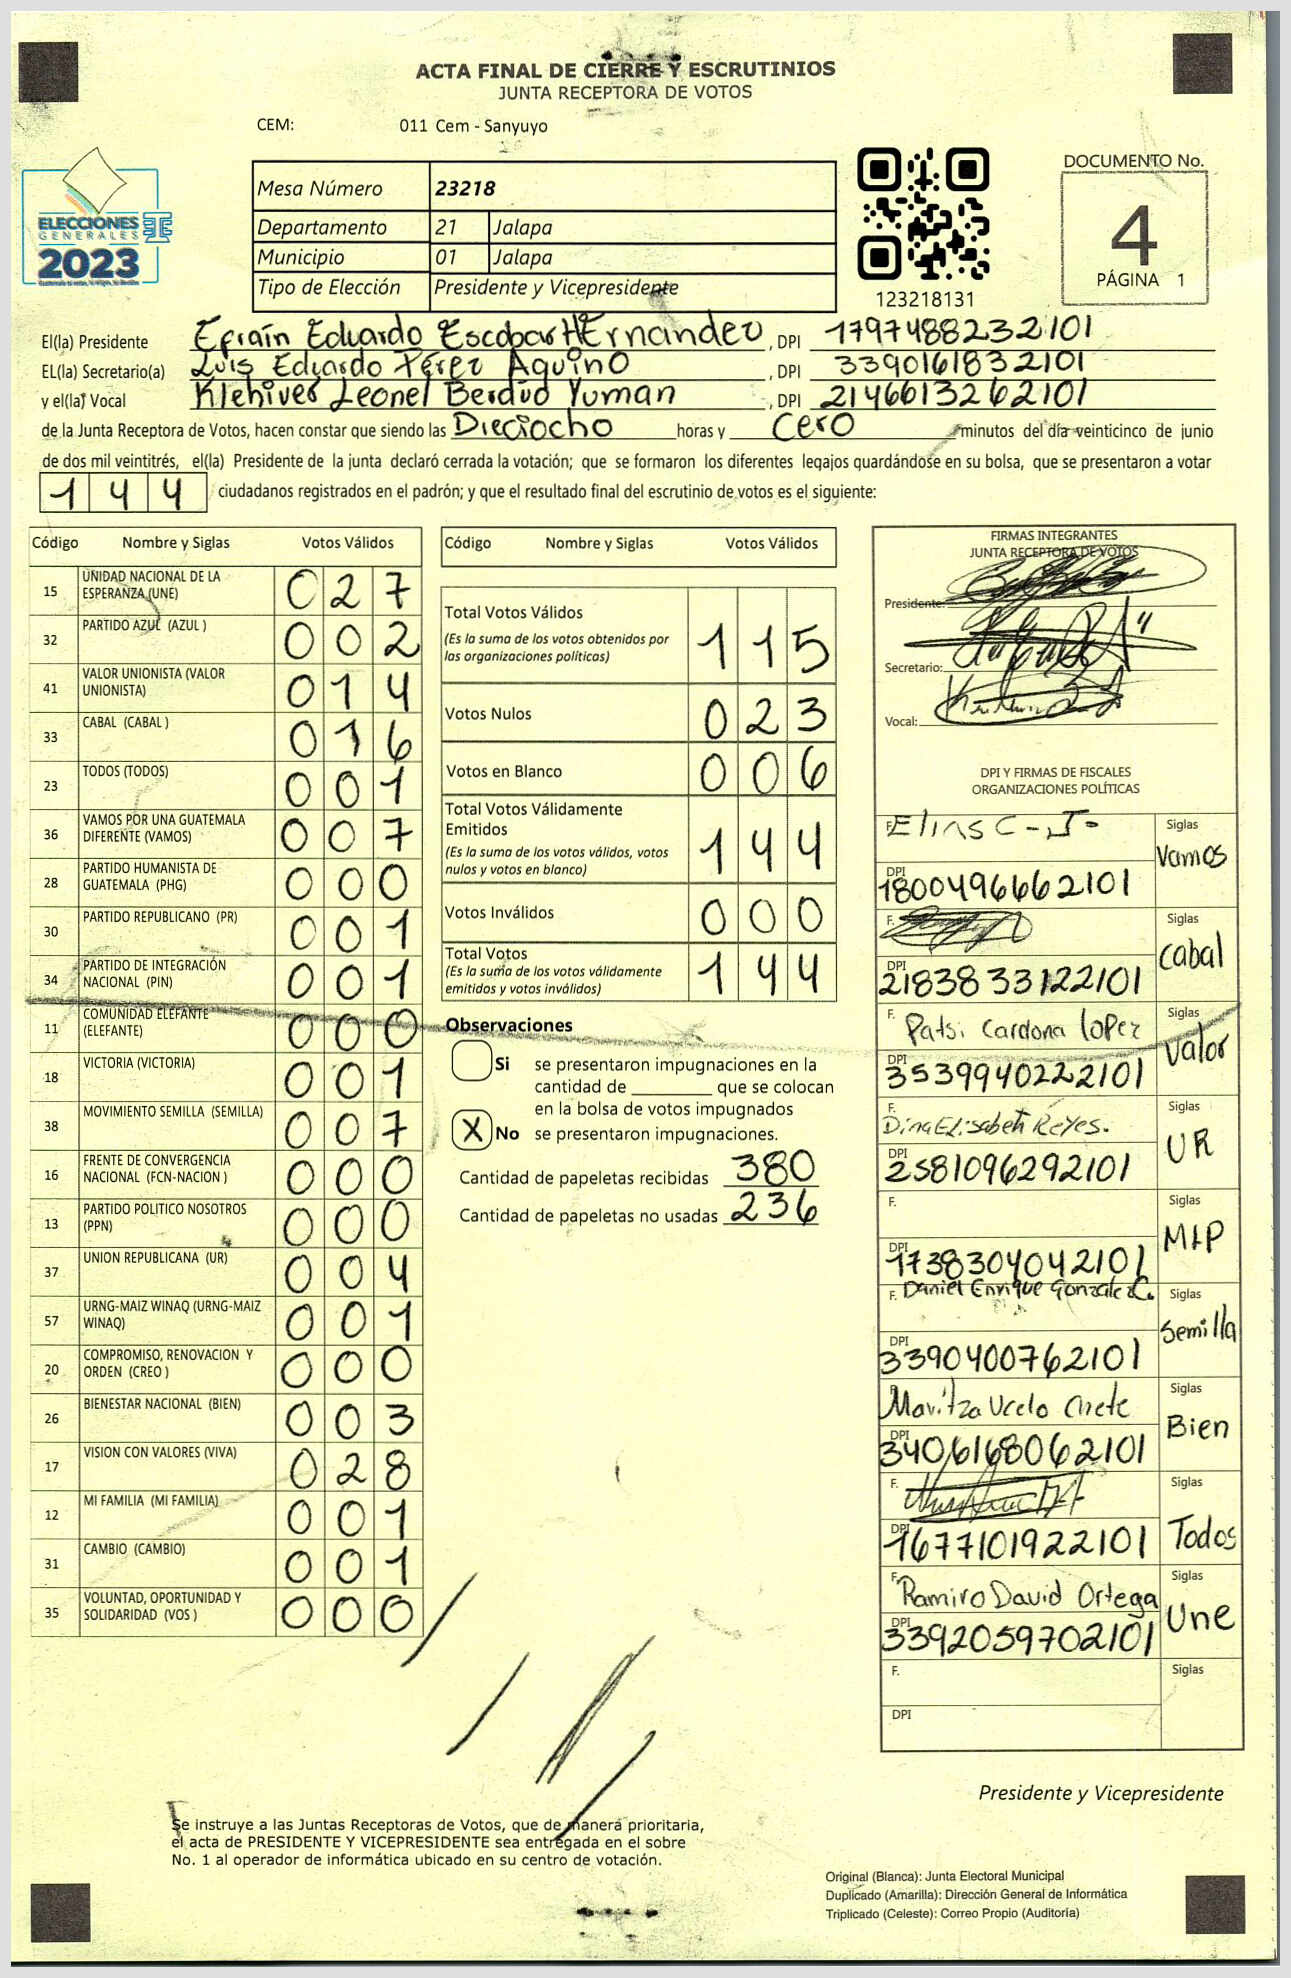 ACTA FINAL DE CIERRE Y ESCRUTINIOS
JUNTA RECEPTORA DE VOTOS
CEM: 011 Cem - Sanyuyo
ELECCIONES
GENERALES
2023
Mesa Número 23218
Departamento 21 Jalapa
Municipio 01 Jalapa
Tipo de Elección Presidente y Vicepresidente
123218131
DOCUMENTO No.
4
PÁGINA 1
El(la) Presidente Efraín Eduardo Escobar HErnandez, DPI 1797488232101
EL(la) Secretario(a) Luis Eduardo Pérez Aquino, DPI 3390161832101
y el(la) Vocal Klehiver Leonel Berdúo Yuman, DPI 2146613262101
de la Junta Receptora de Votos, hacen constar que siendo las Dieciocho horas y cero minutos del día veinticinco de junio
de dos mil veintitrés, el(la) Presidente de la junta declaró cerrada la votación; que se formaron los diferentes legajos quardándose en su bolsa, que se presentaron a votar
144 ciudadanos registrados en el padrón; y que el resultado final del escrutinio de votos es el siguiente:
Código Nombre y Siglas Votos Válidos
15 UNIDAD NACIONAL DE LA ESPERANZA (UNE) 027
32 PARTIDO AZUL (AZUL ) 002
41 VALOR UNIONISTA (VALOR UNIONISTA) 014
33 CABAL (CABAL ) 016
23 TODOS (TODOS) 001
36 VAMOS POR UNA GUATEMALA DIFERENTE (VAMOS) 007
28 PARTIDO HUMANISTA DE GUATEMALA (PHG) 000
30 PARTIDO REPUBLICANO (PR) 001
34 PARTIDO DE INTEGRACIÓN NACIONAL (PIN) 001
11 COMUNIDAD ELEFANTE (ELEFANTE) 000
18 VICTORIA (VICTORIA) 001
38 MOVIMIENTO SEMILLA (SEMILLA) 007
16 FRENTE DE CONVERGENCIA NACIONAL (FCN-NACION ) 000
13 PARTIDO POLITICO NOSOTROS (PPN) 000
37 UNION REPUBLICANA (UR) 004
57 URNG-MAIZ WINAQ (URNG-MAIZ WINAQ) 001
20 COMPROMISO, RENOVACION Y ORDEN (CREO ) 000
26 BIENESTAR NACIONAL (BIEN) 003
17 VISION CON VALORES (VIVA) 028
12 MI FAMILIA (MI FAMILIA) 001
31 CAMBIO (CAMBIO) 001
35 VOLUNTAD, OPORTUNIDAD Y SOLIDARIDAD (VOS ) 000
Código Nombre y Siglas Votos Válidos
Total Votos Válidos 115
(Es la suma de los votos obtenidos por
las organizaciones políticas)
Votos Nulos 023
Votos en Blanco 006
Total Votos Válidamente
Emitidos 144
(Es la suma de los votos válidos, votos
nulos y votos en blanco)
Votos Inválidos 000
Total Votos 144
(Es la suma de los votos válidamente
emitidos y votos inválidos)
Observaciones
Si se presentaron impugnaciones en la
cantidad de ________ que se colocan
en la bolsa de votos impugnados
X No se presentaron impugnaciones.
Cantidad de papeletas recibidas 380
Cantidad de papeletas no usadas 236
FIRMAS INTEGRANTES
JUNTA RECEPTORA DE VOTOS
Presidente:
Secretario:
Vocal:
DPI Y FIRMAS DE FISCALES
ORGANIZACIONES POLÍTICAS
F. Elias C-J- Siglas Vamos
DPI 1800496662101
F. Siglas Cabal
DPI 2183833122101
F. Patsi Cardona lopez Siglas Valor
DPI 3539940222101
F. Dina Elisabeth Reyes. Siglas UR
DPI 2581096292101
F. Siglas MLP
DPI 1738304042101
F. Daniel Enrique Gonzalez C. Siglas Semilla
DPI 3390400762101
Maritza Ucelo Siglas Bien
DPI 3406168062101
F. Siglas Todos
DPI 1677101922101
F. Ramiro David Ortega Siglas Une
DPI 3392059702101
F. Siglas
DPI
Presidente y Vicepresidente
Se instruye a las Juntas Receptoras de Votos, que de manera prioritaria,
el acta de PRESIDENTE Y VICEPRESIDENTE sea entregada en el sobre
No. 1 al operador de informática ubicado en su centro de votación.
Original (Blanca): Junta Electoral Municipal
Duplicado (Amarilla): Dirección General de Informática
Triplicado (Celeste): Correo Propio (Auditoría)